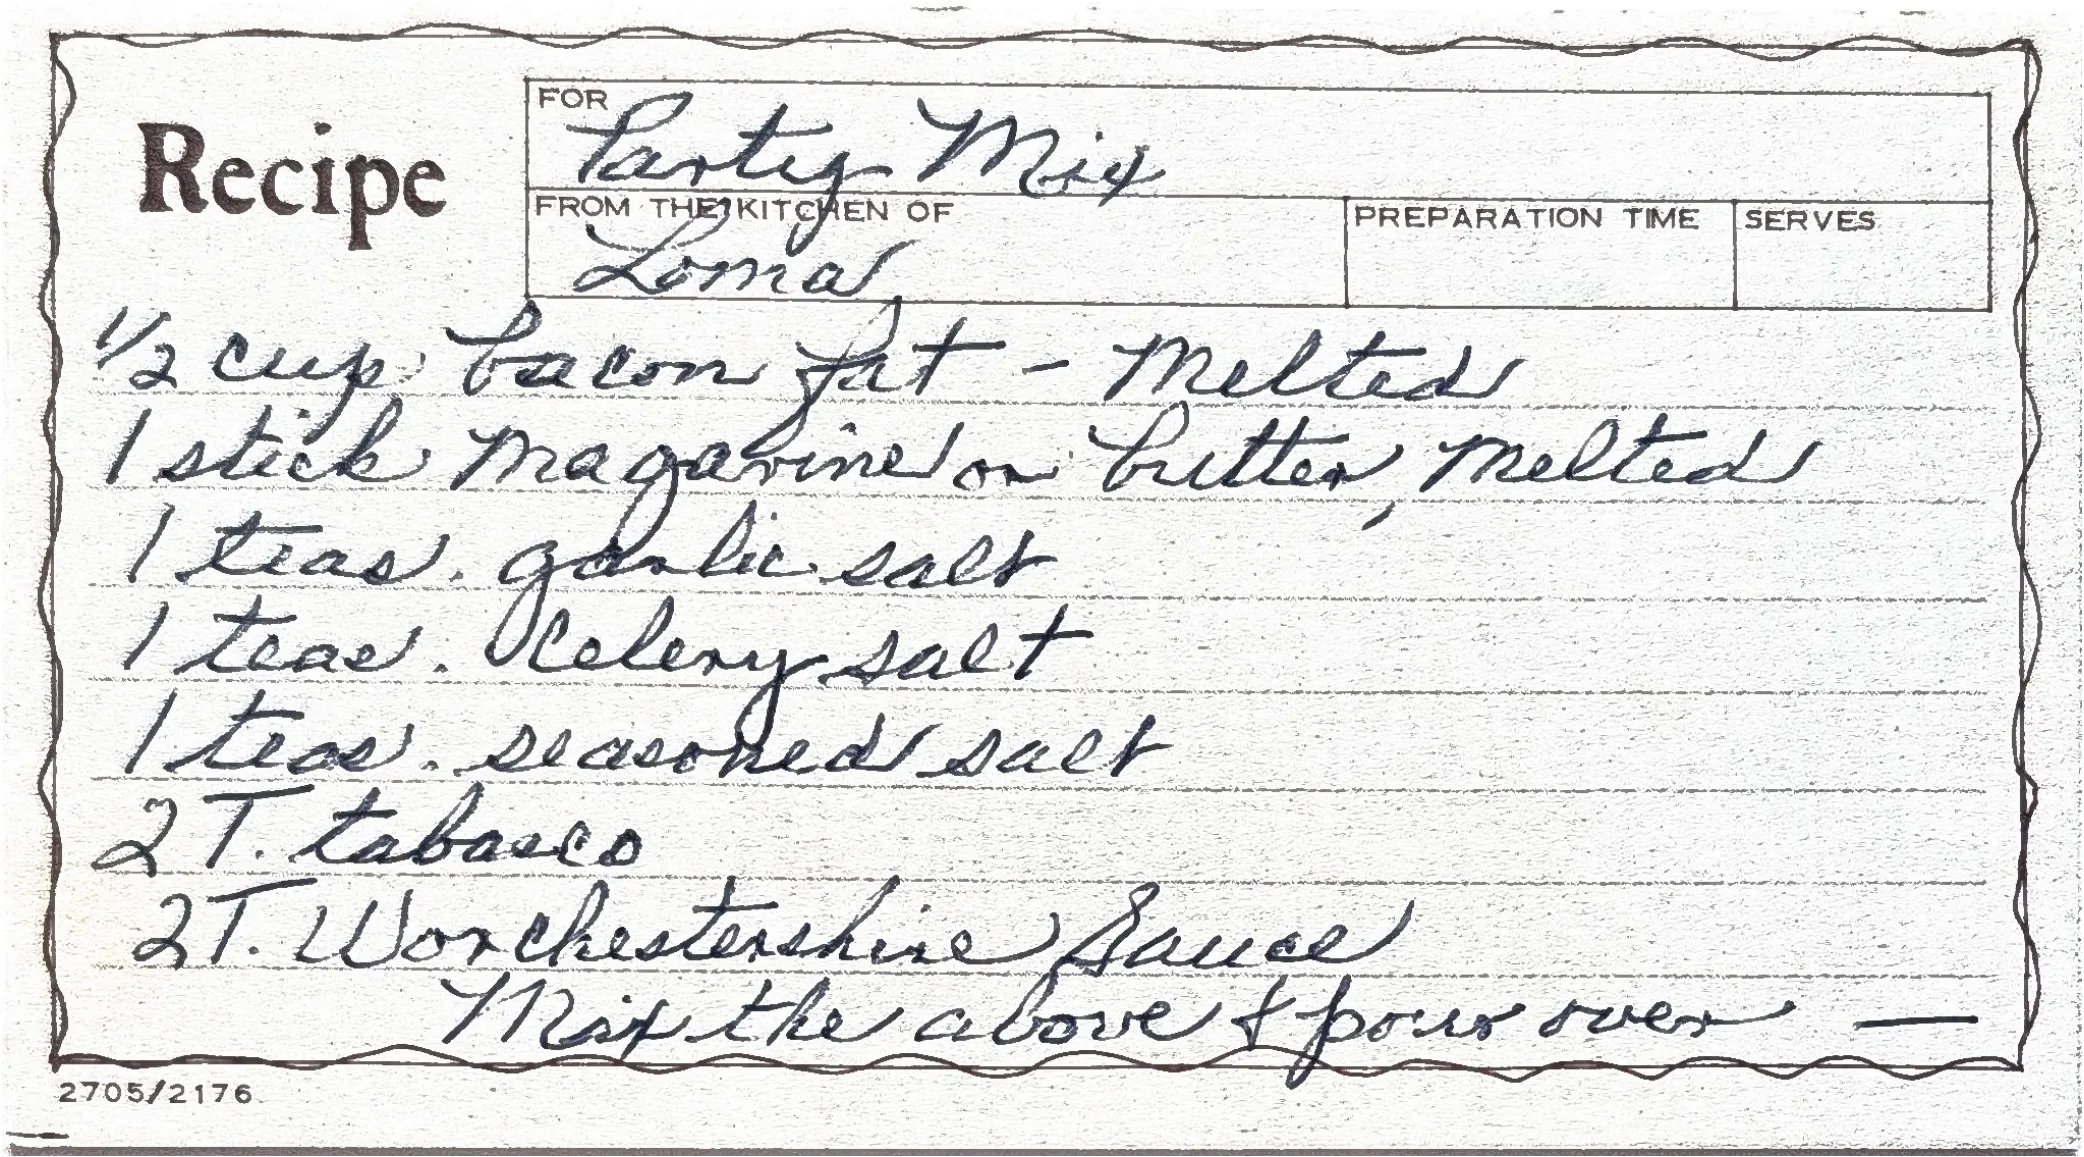 Recipe
FOR
Party Mix
FROM THE KITCHEN OF
Loma
PREPARATION TIME
SERVES
1/2 cup bacon fat - Melted
1 stick Magarine or butter, Melted
1 teas. garlic salt
1 teas. Celery salt
1 teas. seasoned salt
2 T. tabasco
2 T. Worchestershire Sauce
Mix the above & pour over —
2705/2176